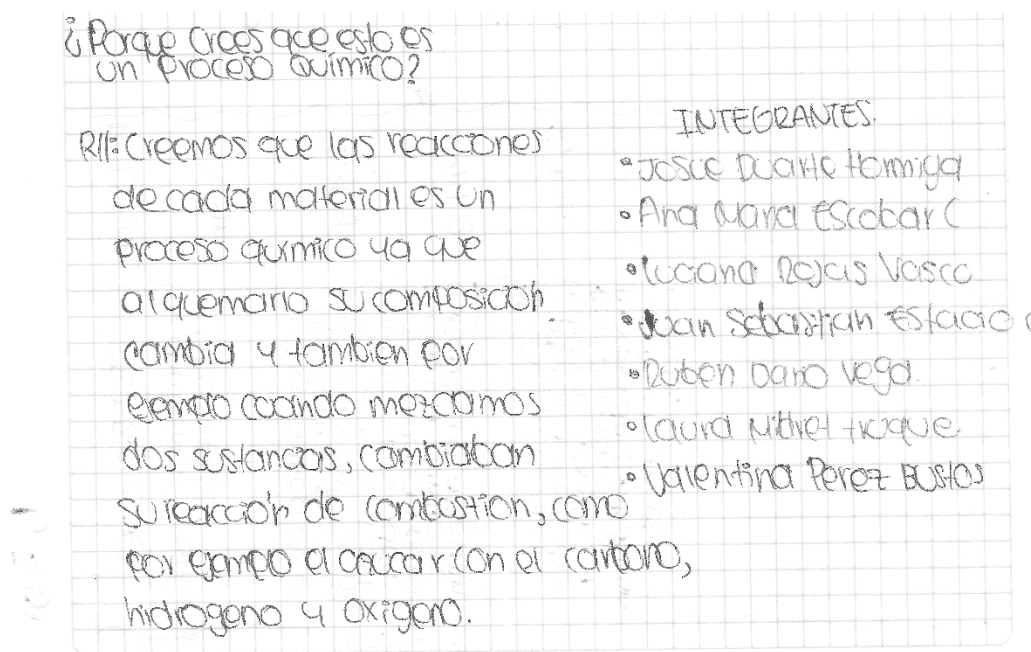 ¿Porque Crees que esto es
un proceso químico?
R//: Creemos que las reacciones
de cada material es un
proceso químico ya que
al quemarlo su composición
cambia y tambien por
ejemplo cuando mezclamos
dos sustancias, cambiaban
su reacción de combustion, como
por ejemplo el azucar con el carbono,
hidrogeno y oxigeno.
INTEGRANTES:
• Duarte Hormiga
• Ana Maria Escobar C
• Luciana Rojas Vasco
• Juan Sebastian Estacio
• Ruben Dario Vega
• Laura
• Valentina Perez Bustos